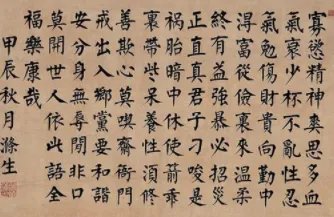 寡慾精神爽思多血
氣衰少杯不亂性忍
氣勉傷財貴向勤中
得富從儉裏來溫柔
終有益強暴必招災
正直真君子刁唆是
禍胎暗中休使箭乖
裏帶些呆養性須修
善欺心莫喫齋衙門
戒出入鄉黨要和諧
安分身無辱閒非口
莫開世人依此語全
福樂康哉
甲辰秋月滌生